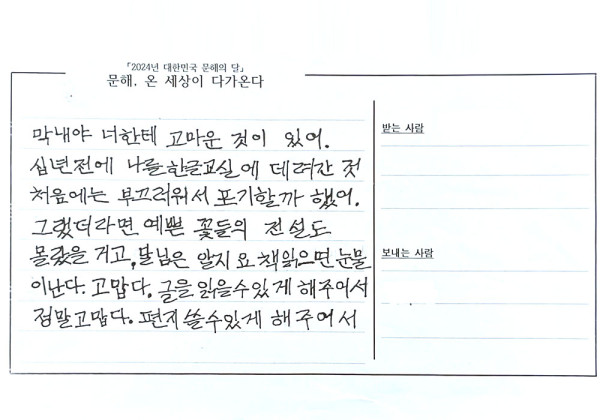 「2024년 대한민국 문해의 달」
문해, 온 세상이 다가온다
막내야 너한테 고마운 것이 있어.
십년전에 나를 한글교실에 데려간 것
처음에는 부끄러워서 포기할까 했어.
그랬더라면 예쁜 꽃들의 전설도
몰랐을 거고, 달님은 알지요 책읽으면 눈물
이난다. 고맙다. 글을 읽을수있게 해주어서
정말고맙다. 편지쓸수있게 해주어서
받는 사람
보내는 사람